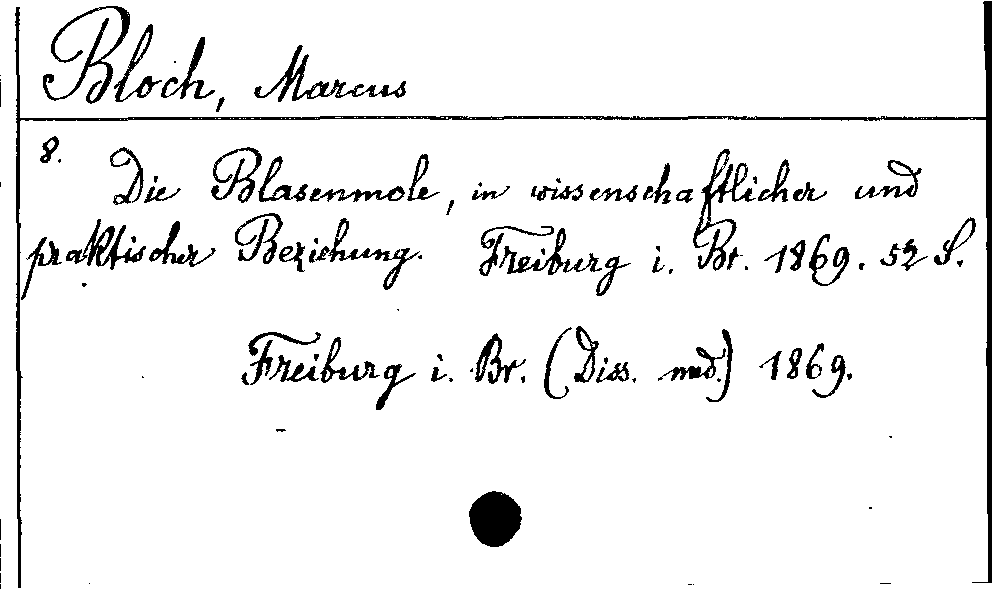 Bloch, Marcus
8.
Die Blasenmole, in wissenschaftlicher und
praktischer Beziehung. Freiburg i. Br. 1869. 52 S.
Freiburg i. Br. (Diss. med.) 1869.